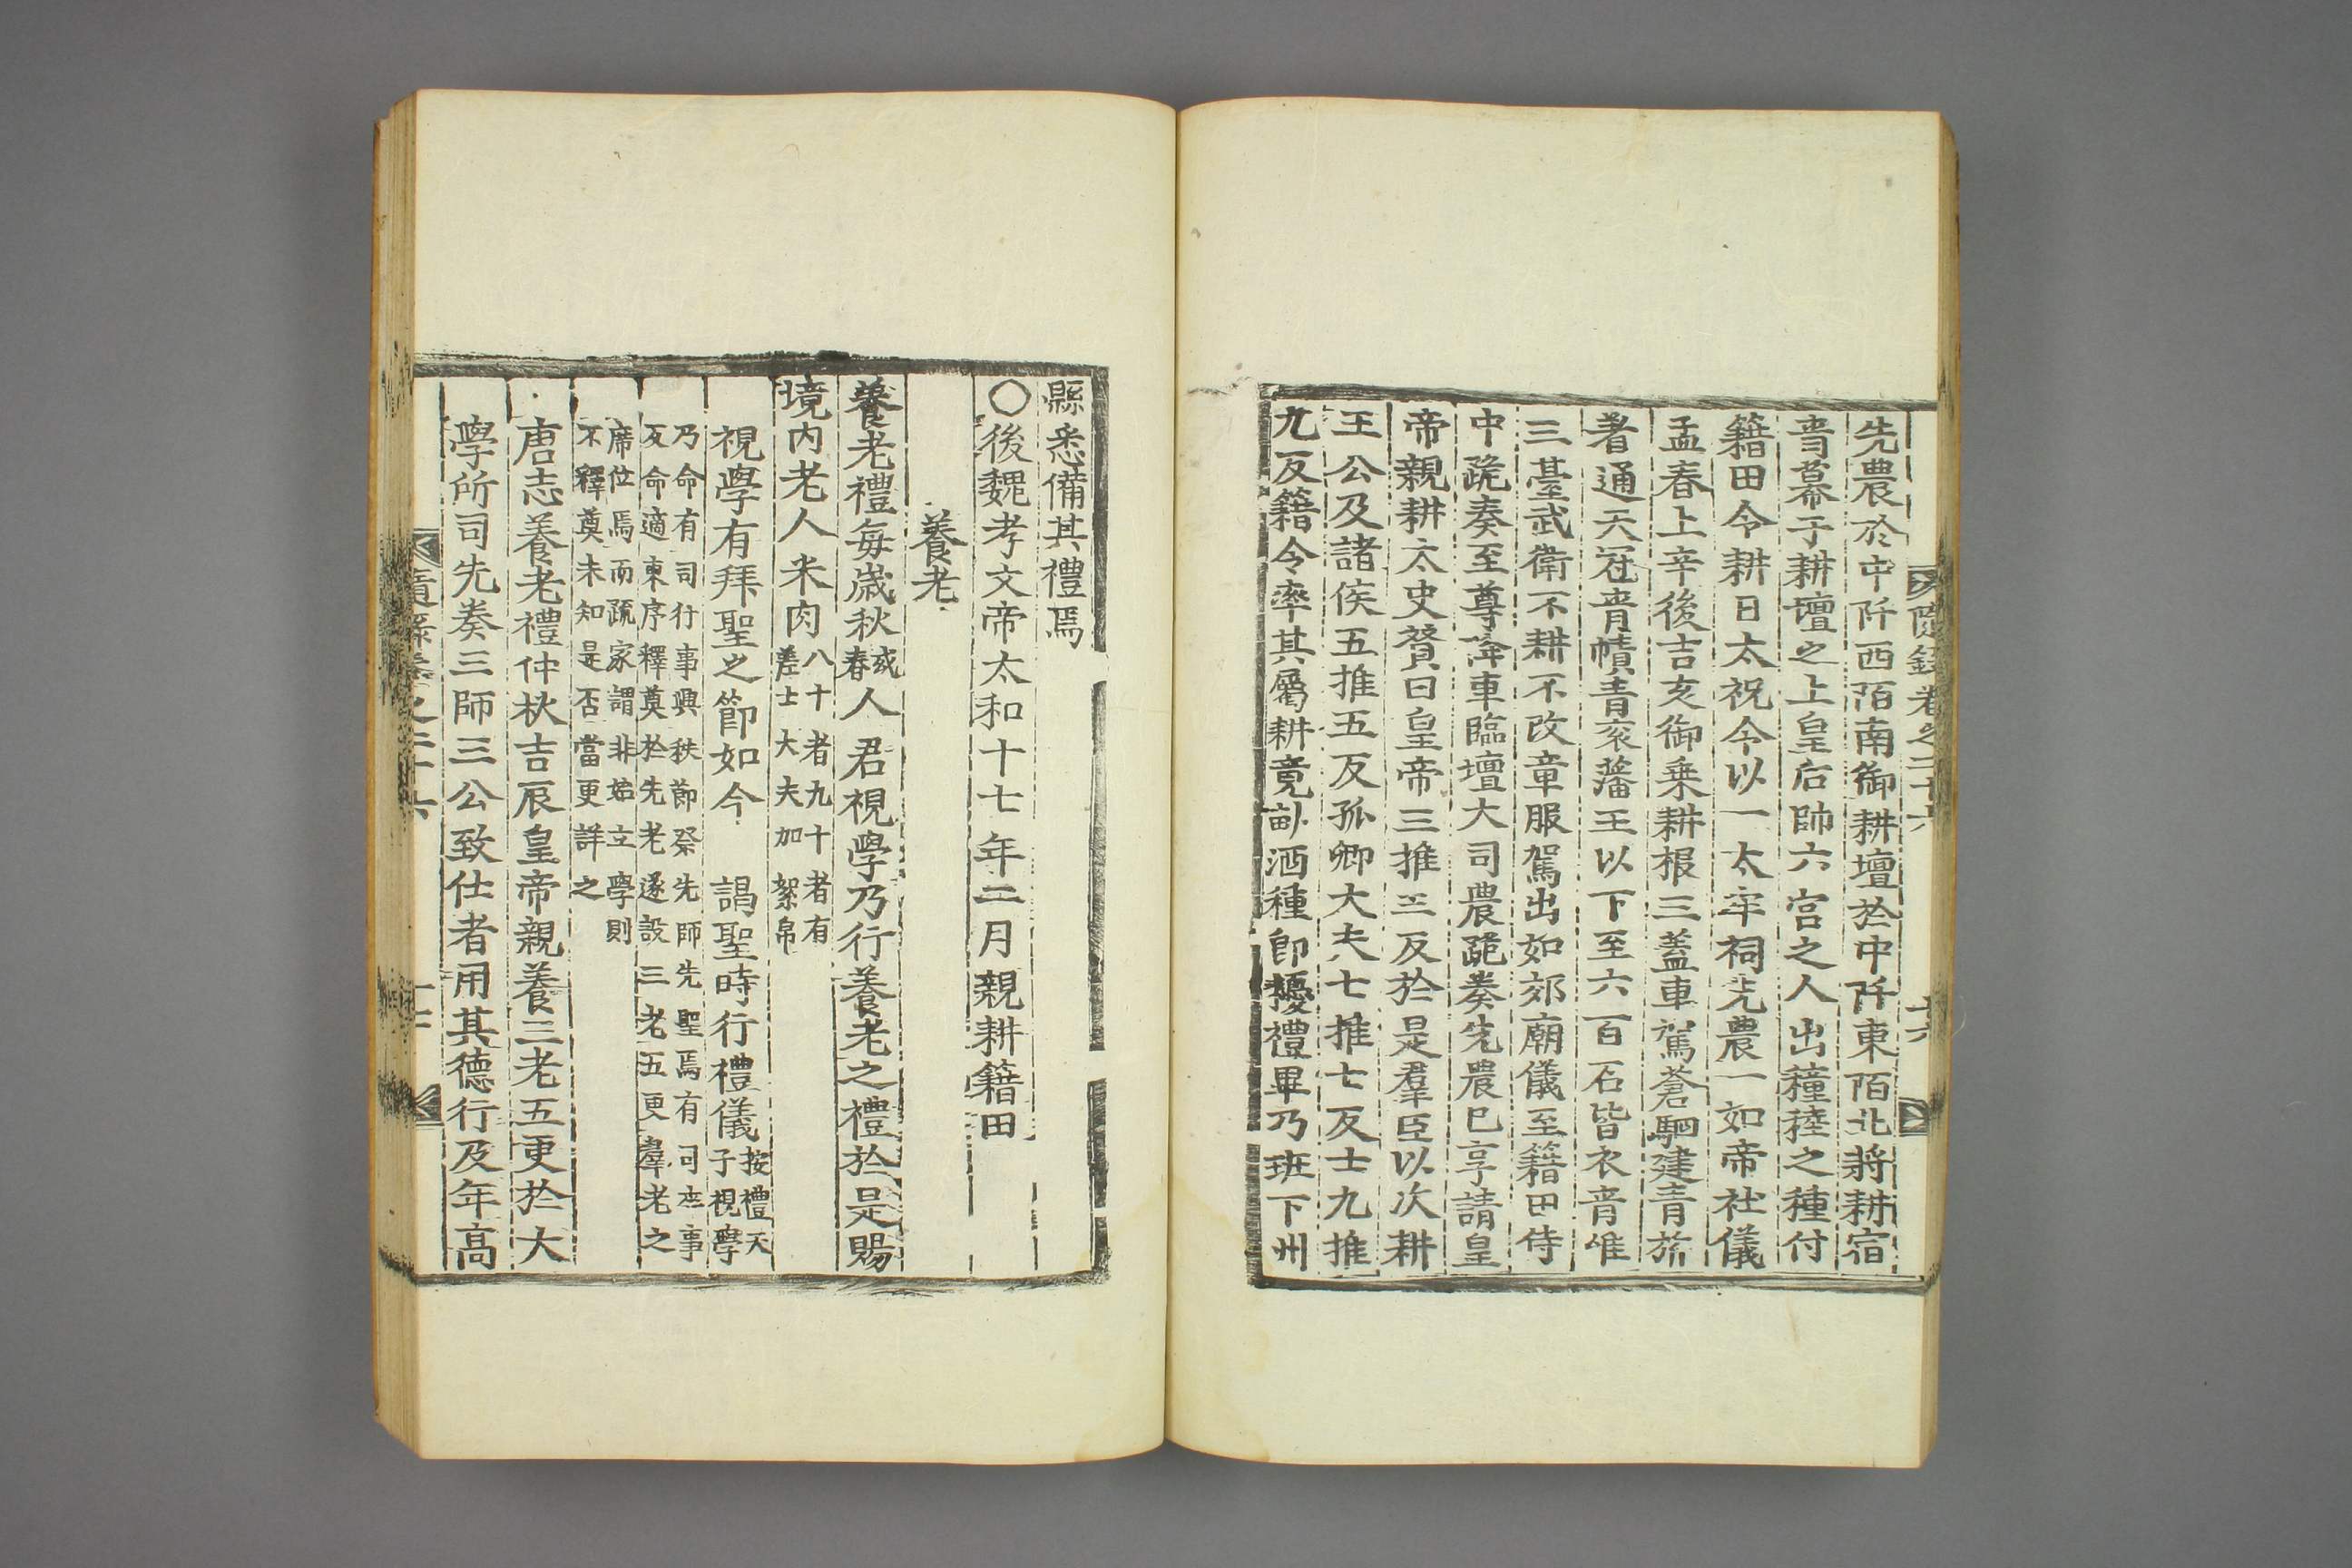 隨錄卷之二十六
十六
先農於中阡西陌南御耕壇於中阡東陌北將耕宿
青幕于耕壇之上皇后帥六宮之人出穜稑之種付
籍田令耕日太祝令以一太牢祠先農一如帝社儀
孟春上辛後吉亥御乗耕根三蓋車駕蒼駟建青旂
著通天冠青幘青衮藩王以下至六百石皆衣青唯
三臺武衛不耕不改章服駕出如郊廟儀至籍田侍
中跪奏至尊降車臨壇大司農跪奏先農已享請皇
帝親耕太史贊曰皇帝三推三反於是羣臣以次耕
王公及諸侯五推五反孤卿大夫七推七反士九推
九反籍令率其屬耕竟畝洒種卽擾禮畢乃班下州
縣悉備其禮焉
○後魏孝文帝太和十七年二月親耕籍田
養老
養老禮每歲秋或春人君視學乃行養老之禮於是賜
境内老人米肉八十者九十者有差士大夫加絮帛
視學有拜聖之節如今 謁聖時行禮儀按禮天子視學
乃命有司行事興秩節祭先師先聖焉有司卒事
反命適東序釋奠於先老遂設三老五更羣老之
席位焉而疏家謂非始立學則
不釋奠未知是否當更詳之
唐志養老禮仲秋吉辰皇帝親養三老五更於大
學所司先奏三師三公致仕者用其德行及年高